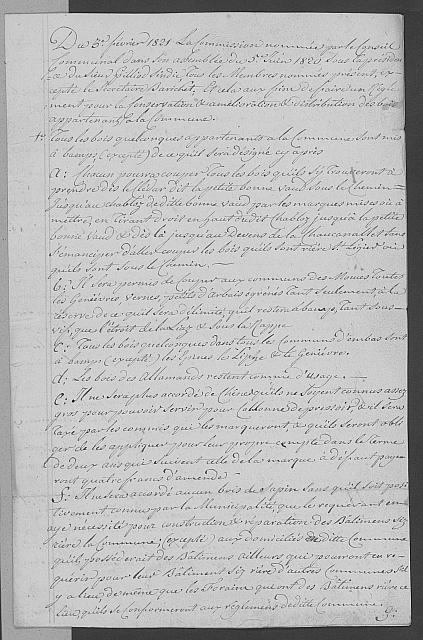 Du 5e février 1821 La Commission nommée par le Conseil
Communal dans son assemblée du 5e Juin 1820 Sous la présiden
ce du Sieur Gillioz Sindic, tous les Membres nommés présent, ex-
cepté le Secrétaire Et cela aux fin de faire un Régle
ment pour la Conservation & amélioration & distribution des bois
appartenants à la Commune.
1° Tous les bois quelconques appartenants a la Commune Sont mis
à bamps (excepté) de ce qu'il sera désigné cy après
a: Chacun pourra couper tous les bois qu'ils s'y trouveront à
prendre dès le dit la petite bonne vaud Sous le Chemin
Jusqu'au chablez de ditte bonne vaud par les marques mises où à
mettre, en Tirant droit en haut du dit Chablez jusqu'à la petite
bonne Vaud & dès là jusqu'au Devens de la Sans
S'émanciper d'aller couper les bois qu'ils sont rière St Légier où
qu'ils sont Sous le Chemin.
b: Il Sera permis de Couper aux communs des toutes
les Genévriers, Vernes, petits d'Arbais Tant Seulement, à la
réserve de ce quil Sera délimité, quil restera à banp, Tant Sous-
vif, que & Sous la Nappe
c: Tous les bois quelconques dans tous les Communs d'embas Sont
à bamps (excepté) les Epines les & le Genièvre.
d: Les bois des Allamands restent comme d'usage.
e: Il ne Sera plus accordé de Chêne qu'ils ne Soyent connus assez
gros pour pouvoir Servir pour Collonne de pressoir, & il Sera
Taxé par les commis qui les marqueront & qu'ils Seront obli
ger de les appliquer pour leur propre compte dans le terme
de deux ans qui Suivent celle de la marque à défaut paye
ront quatre francs d'amende
f: Il ne Sera accordé aucun bois de Sapin Sans qu'il soit posi
tivement connus par la Municipalité, que le requérant en
aye nécessité pour construction & réparation des Bâtimens
rière la Commune, (excepté) aux domiciliés de ditte Commune
qu'ils posséderait des Bâtimens ailleurs qui pourront re
quérir pour leur Bâtiment rière d'autres Communes S'il
y a lieu de même que les Forains qui ont des Bâtimens rière ce
lieu, qu'ils se conformeront aux règlemens de ditte Commune.
g: